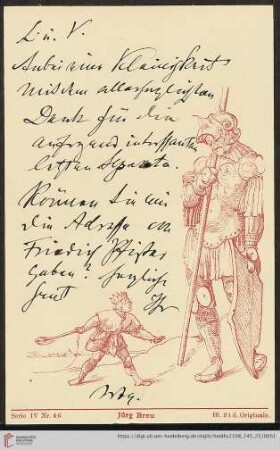 L. u. V.
Anbei eine Kleinigkeit
mit dem allerherzlichsten
Dank für die
letzten
Können Sie mir
die Adresse von
Friedrich Pfister
geben? Herzliche
Ihr
Serie IV Nr. 46
Jörg Breu
Bl. 81 d. Originals.
https://digi.ub.uni-heidelberg.de/diglit/heidhs2108_745_23/0051